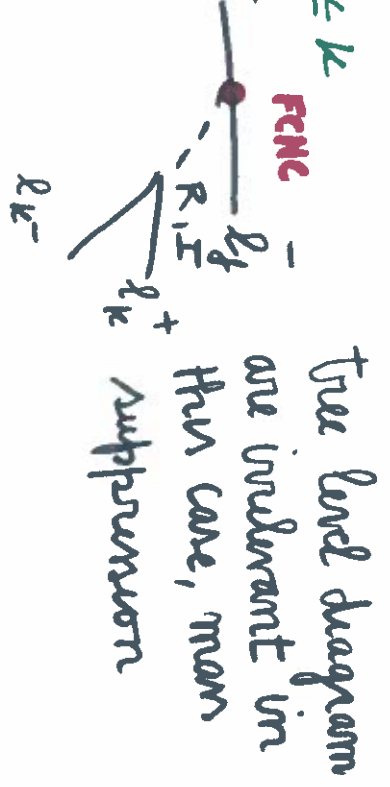 ≤ k
FCNC
l_f^-
R, I
l_k^+
l_k^-
tree level diagram
are irrelevant in
this case, mass
suppression